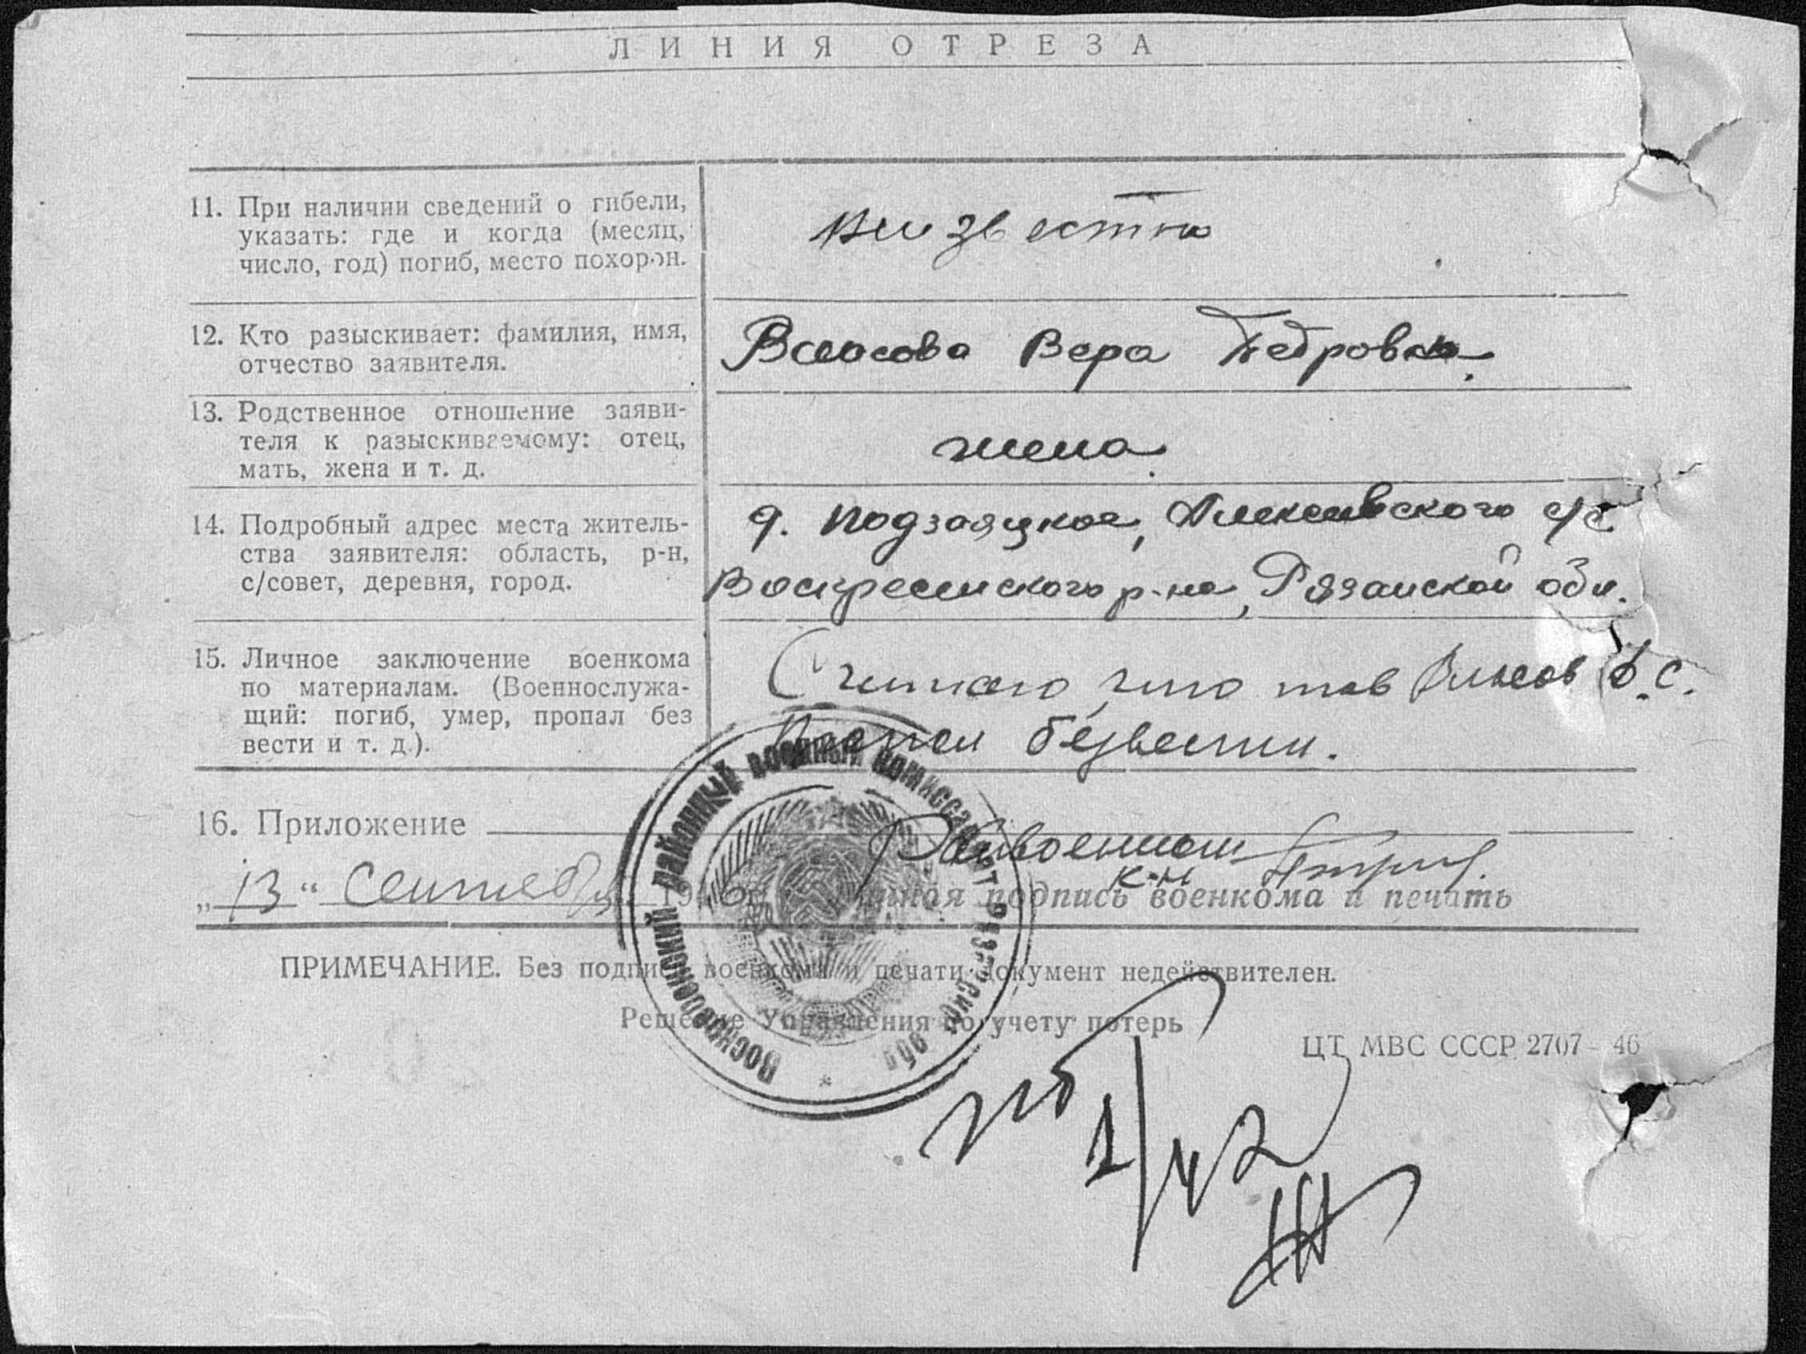 ЛИНИЯ ОТРЕЗА
11. При наличии сведений о гибели,
указать: где и когда (месяц,
число, год) погиб, место похорон.
неизвестно
12. Кто разыскивает: фамилия, имя,
отчество заявителя.
Власова Вера Петровна.
13. Родственное отношение заяви-
теля к разыскиваемому: отец,
мать, жена и т. д.
жена.
14. Подробный адрес места житель-
ства заявителя: область, р-н,
с/совет, деревня, город.
д. Подзаяцкое, Алексеевского с/с
Воскресенского р-на, Рязанской обл.
15. Личное заключение военкома
по материалам. (Военнослужа-
щий: погиб, умер, пропал без
вести и т. д.).
Считаю, что тов Власов С.
Пропал безвести.
16. Приложение
Райвоенком
к-н
„13“ Сентября 194 подпись военкома и печать
районный военный комиссариат
ПРИМЕЧАНИЕ. Без подписи военкома и печати документ недействителен.
Решение Управления по учету потерь
ЦТ МВС СССР 2707—46